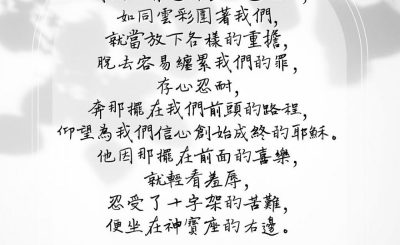 如同雲彩圍著我們，
就當放下各樣的重擔，
脫去容易纏累我們的罪，
存心忍耐，
奔那擺在我們前頭的路程，
仰望為我們信心創始成終的耶穌。
他因那擺在前面的喜樂，
就輕看羞辱，
忍受了十字架的苦難，
便坐在神寶座的右邊。